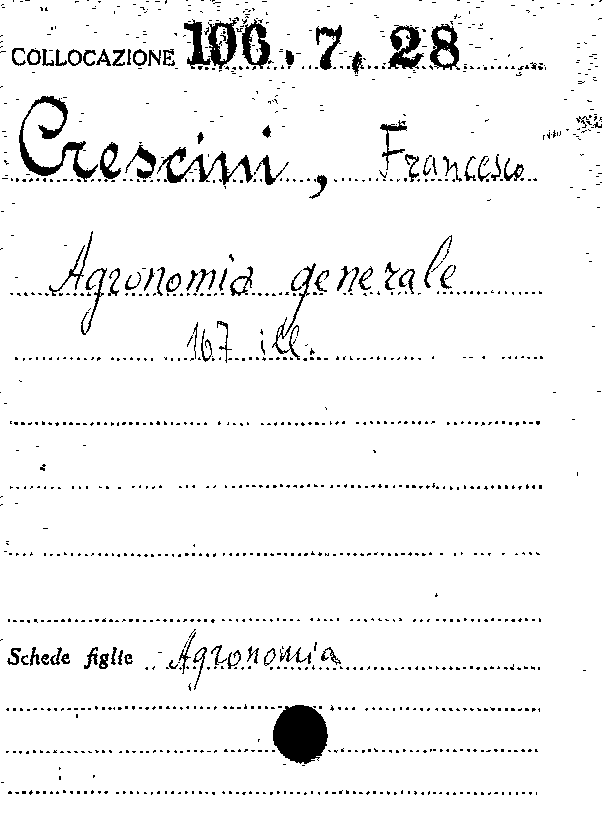 COLLOCAZIONE 106.7.28
Crescini, Francesco
Agronomia generale
167 ill.
Schede figlie Agronomia